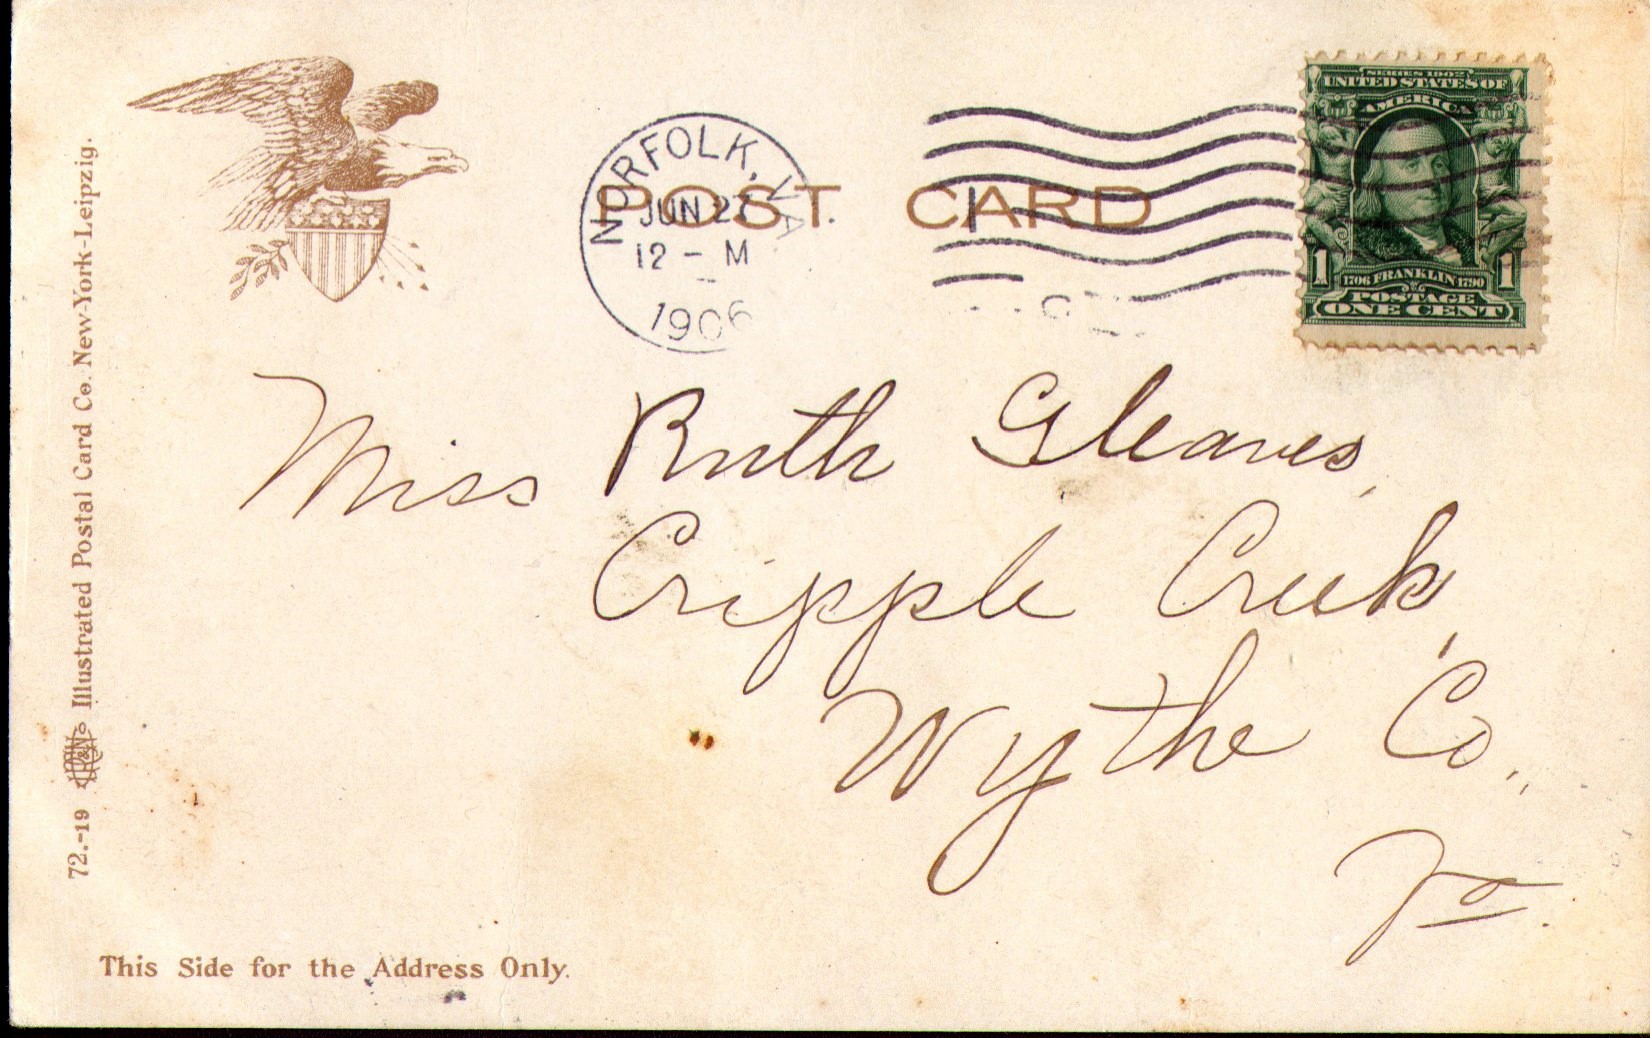 SERIES 1902
UNITED STATES OF
AMERICA
1 1706 FRANKLIN 1790 1
POSTAGE
ONE CENT
NORFOLK, VA.
JUN 27
12 - M
1906
POST CARD
Miss Ruth Gleaves,
Cripple Creek,
Wythe Co.,
Va.
72.-19 Illustrated Postal Card Co. New-York-Leipzig.
This Side for the Address Only.